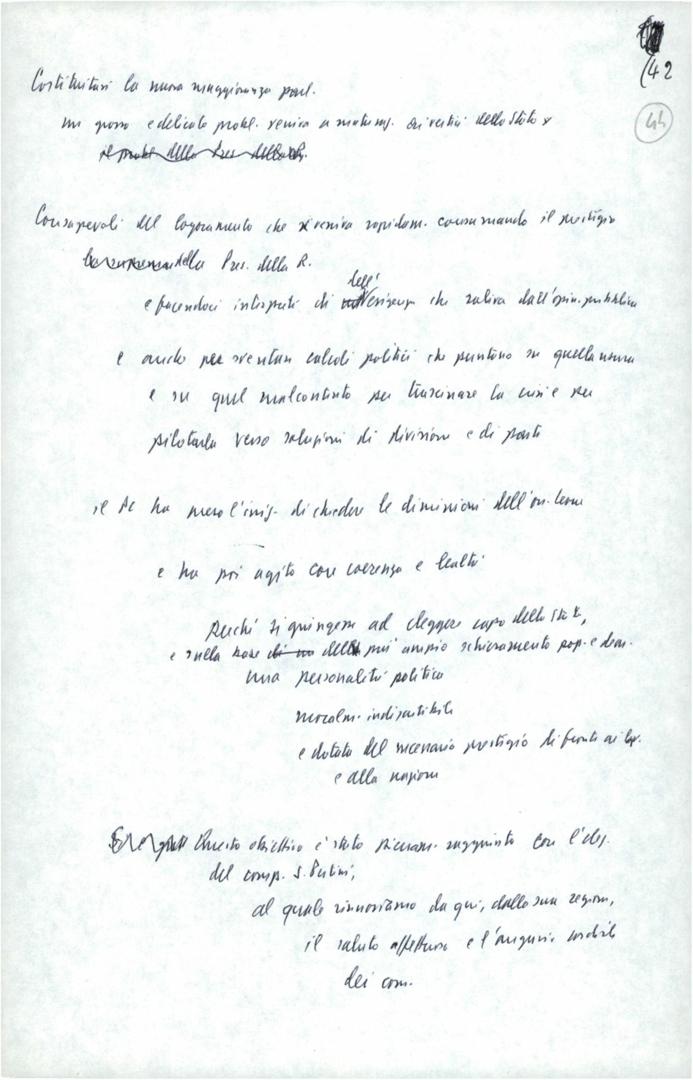 (42
44
Costituitasi la nuova maggioranza parl.
un grosso e delicato probl. veniva a maturaz. ai vertici dello Stato
il probl. della Pres. della R.
Consapevoli del logoramento che si veniva rapidam. consumando il prestigio
della Pres. della R.
dell'
e facendoci interpreti di esigenza che saliva dall'opin. pubblica
e anche per sventare calcoli politici che puntano su quella
e su quel malcontento per trascinare la crisi e per
pilotarla verso soluzioni di divisione e di parte
il PC ha preso l'iniz. di chiedere le dimissioni dell'on. Leone
e ha poi agito con coerenza e lealtà
perché si giungesse ad eleggere capo dello Stato,
e sulla base di un della più ampio schieramento pop. e dem.
una personalità politica
moralm. indiscutibile
e dotata del necessario prestigio di fronte ai
e alla nazione
Questo obiettivo è stato pienam. raggiunto con l'elez.
del comp. S. Pertini,
al quale rinnoviamo da qui, dalla sua regione,
il saluto affettuoso e l'augurio cordiale
dei com.